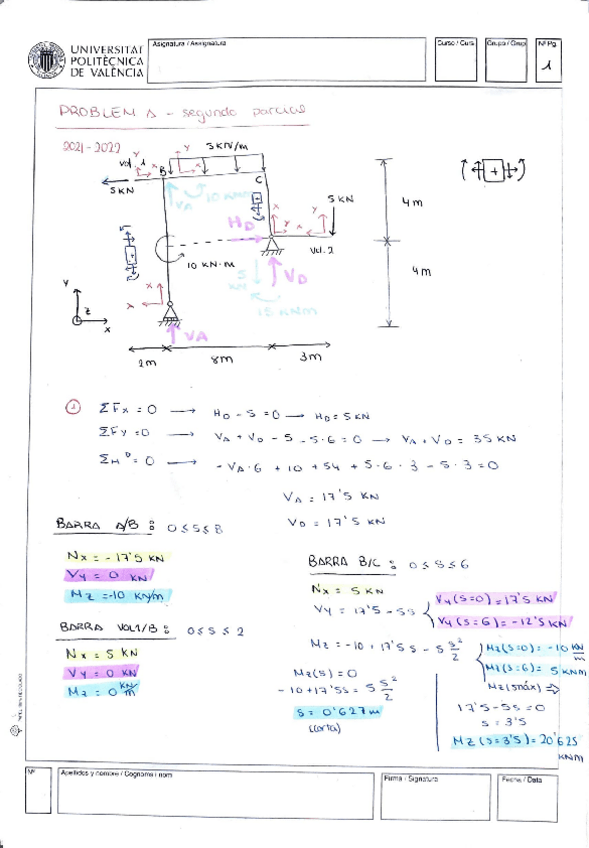 UNIVERSITAT
POLITÈCNICA
DE VALÈNCIA
Asignatura / Assignatura
Curso / Curs
Grupo / Grup
Nº Pg.
1
PROBLEMA - segundo parcial
2021-2022
Vol. 1
5 KN/m
B
C
5 KN
VA
10 KNm
HD
5 KN
4m
10 KN·m
Vol. 2
5 KN
VD
4m
15 KNm
VA
y
z
x
2m
8m
3m
1
ΣFx = 0 → HD - 5 = 0 → HD = 5 KN
ΣFy = 0 → VA + VD - 5 - 5·6 = 0 → VA + VD = 35 KN
ΣM D = 0 → - VA·6 + 10 + 5·4 + 5·6·3 - 5·3 = 0
VA = 17'5 KN
VD = 17'5 KN
BARRA A/B : 0 ≤ s ≤ 8
Nx = -17'5 KN
Vy = 0 KN
Mz = -10 KN/m
BARRA VOL1/B : 0 ≤ s ≤ 2
Nx = 5 KN
Vy = 0 KN
Mz = 0 KN/m
BARRA B/C : 0 ≤ s ≤ 6
Nx = 5 KN
Vy = 17'5 - 5s
Vy (s=0) = 17'5 KN
Vy (s=6) = -12'5 KN
Mz = -10 + 17'5 s - 5 s²/2
Mz (s=0) = -10 KN/m
Mz (s=6) = 5 KNm
Mz (smáx) ⇒
17'5 - 5s = 0
s = 3'5
Mz (s=3'5) = 20'625 KNm
Mz(s) = 0
-10 + 17'5s = 5 s²/2
s = 0'627 m
(corta)
Nº
Apellidos y nombre / Cognoms i nom
Firma / Signatura
Fecha / Data